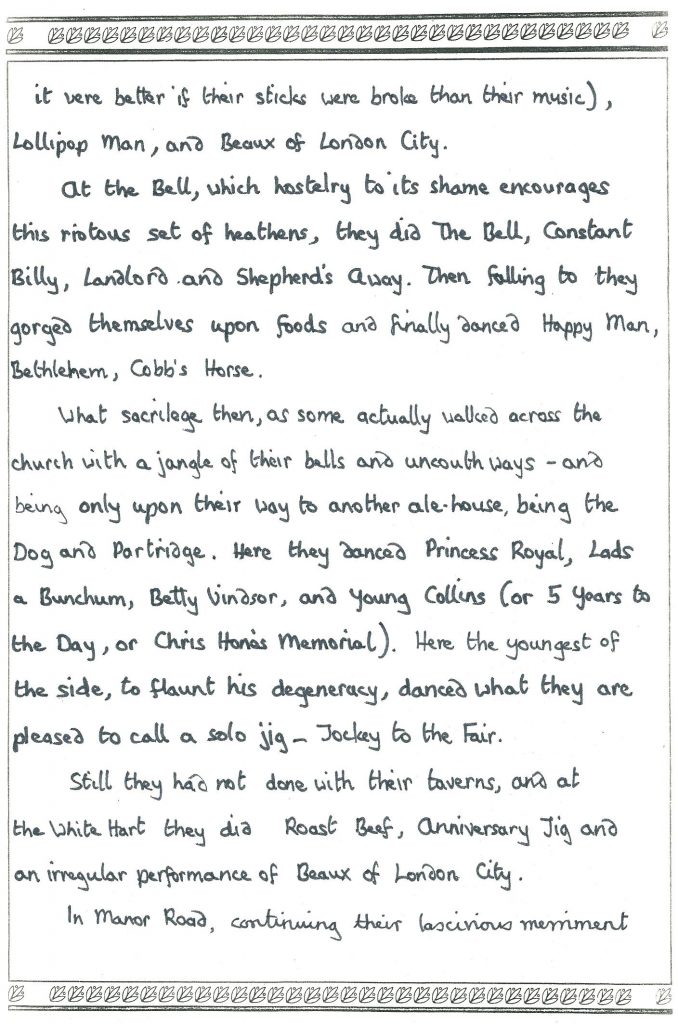 it were better if their sticks were broke than their music),
Lollipop Man, and Beaux of London City.
At the Bell, which hostelry to its shame encourages
this riotous set of heathens, they did The Bell, Constant
Billy, Landlord and Shepherd's Away. Then falling to they
gorged themselves upon foods and finally danced Happy Man,
Bethlehem, Cobb's Horse.
What sacrilege then, as some actually walked across the
church with a jangle of their bells and uncouth ways - and
being only upon their way to another ale-house, being the
Dog and Partridge. Here they danced Princess Royal, Lads
a Bunchum, Betty Windsor, and Young Collins (or 5 Years to
the Day, or Chris Hone's Memorial). Here the youngest of
the side, to flaunt his degeneracy, danced what they are
pleased to call a solo jig - Jockey to the Fair.
Still they had not done with their taverns, and at
the White Hart they did Roast Beef, Anniversary Jig and
an irregular performance of Beaux of London City.
In Manor Road, continuing their lascivious merriment